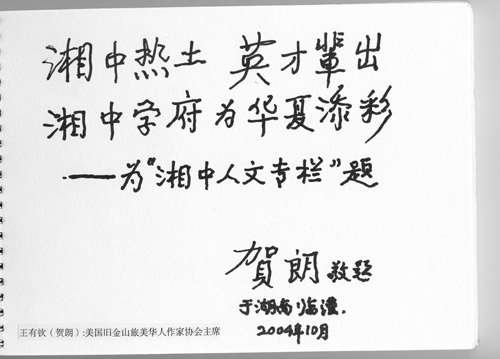 湘中热土 英才辈出
湘中学府为华夏添彩
——为"湘中人文专栏"题
賀朗敬题
于湖南临澧.
2004年10月
王有钦（贺朗）:美国旧金山旅美华人作家协会主席